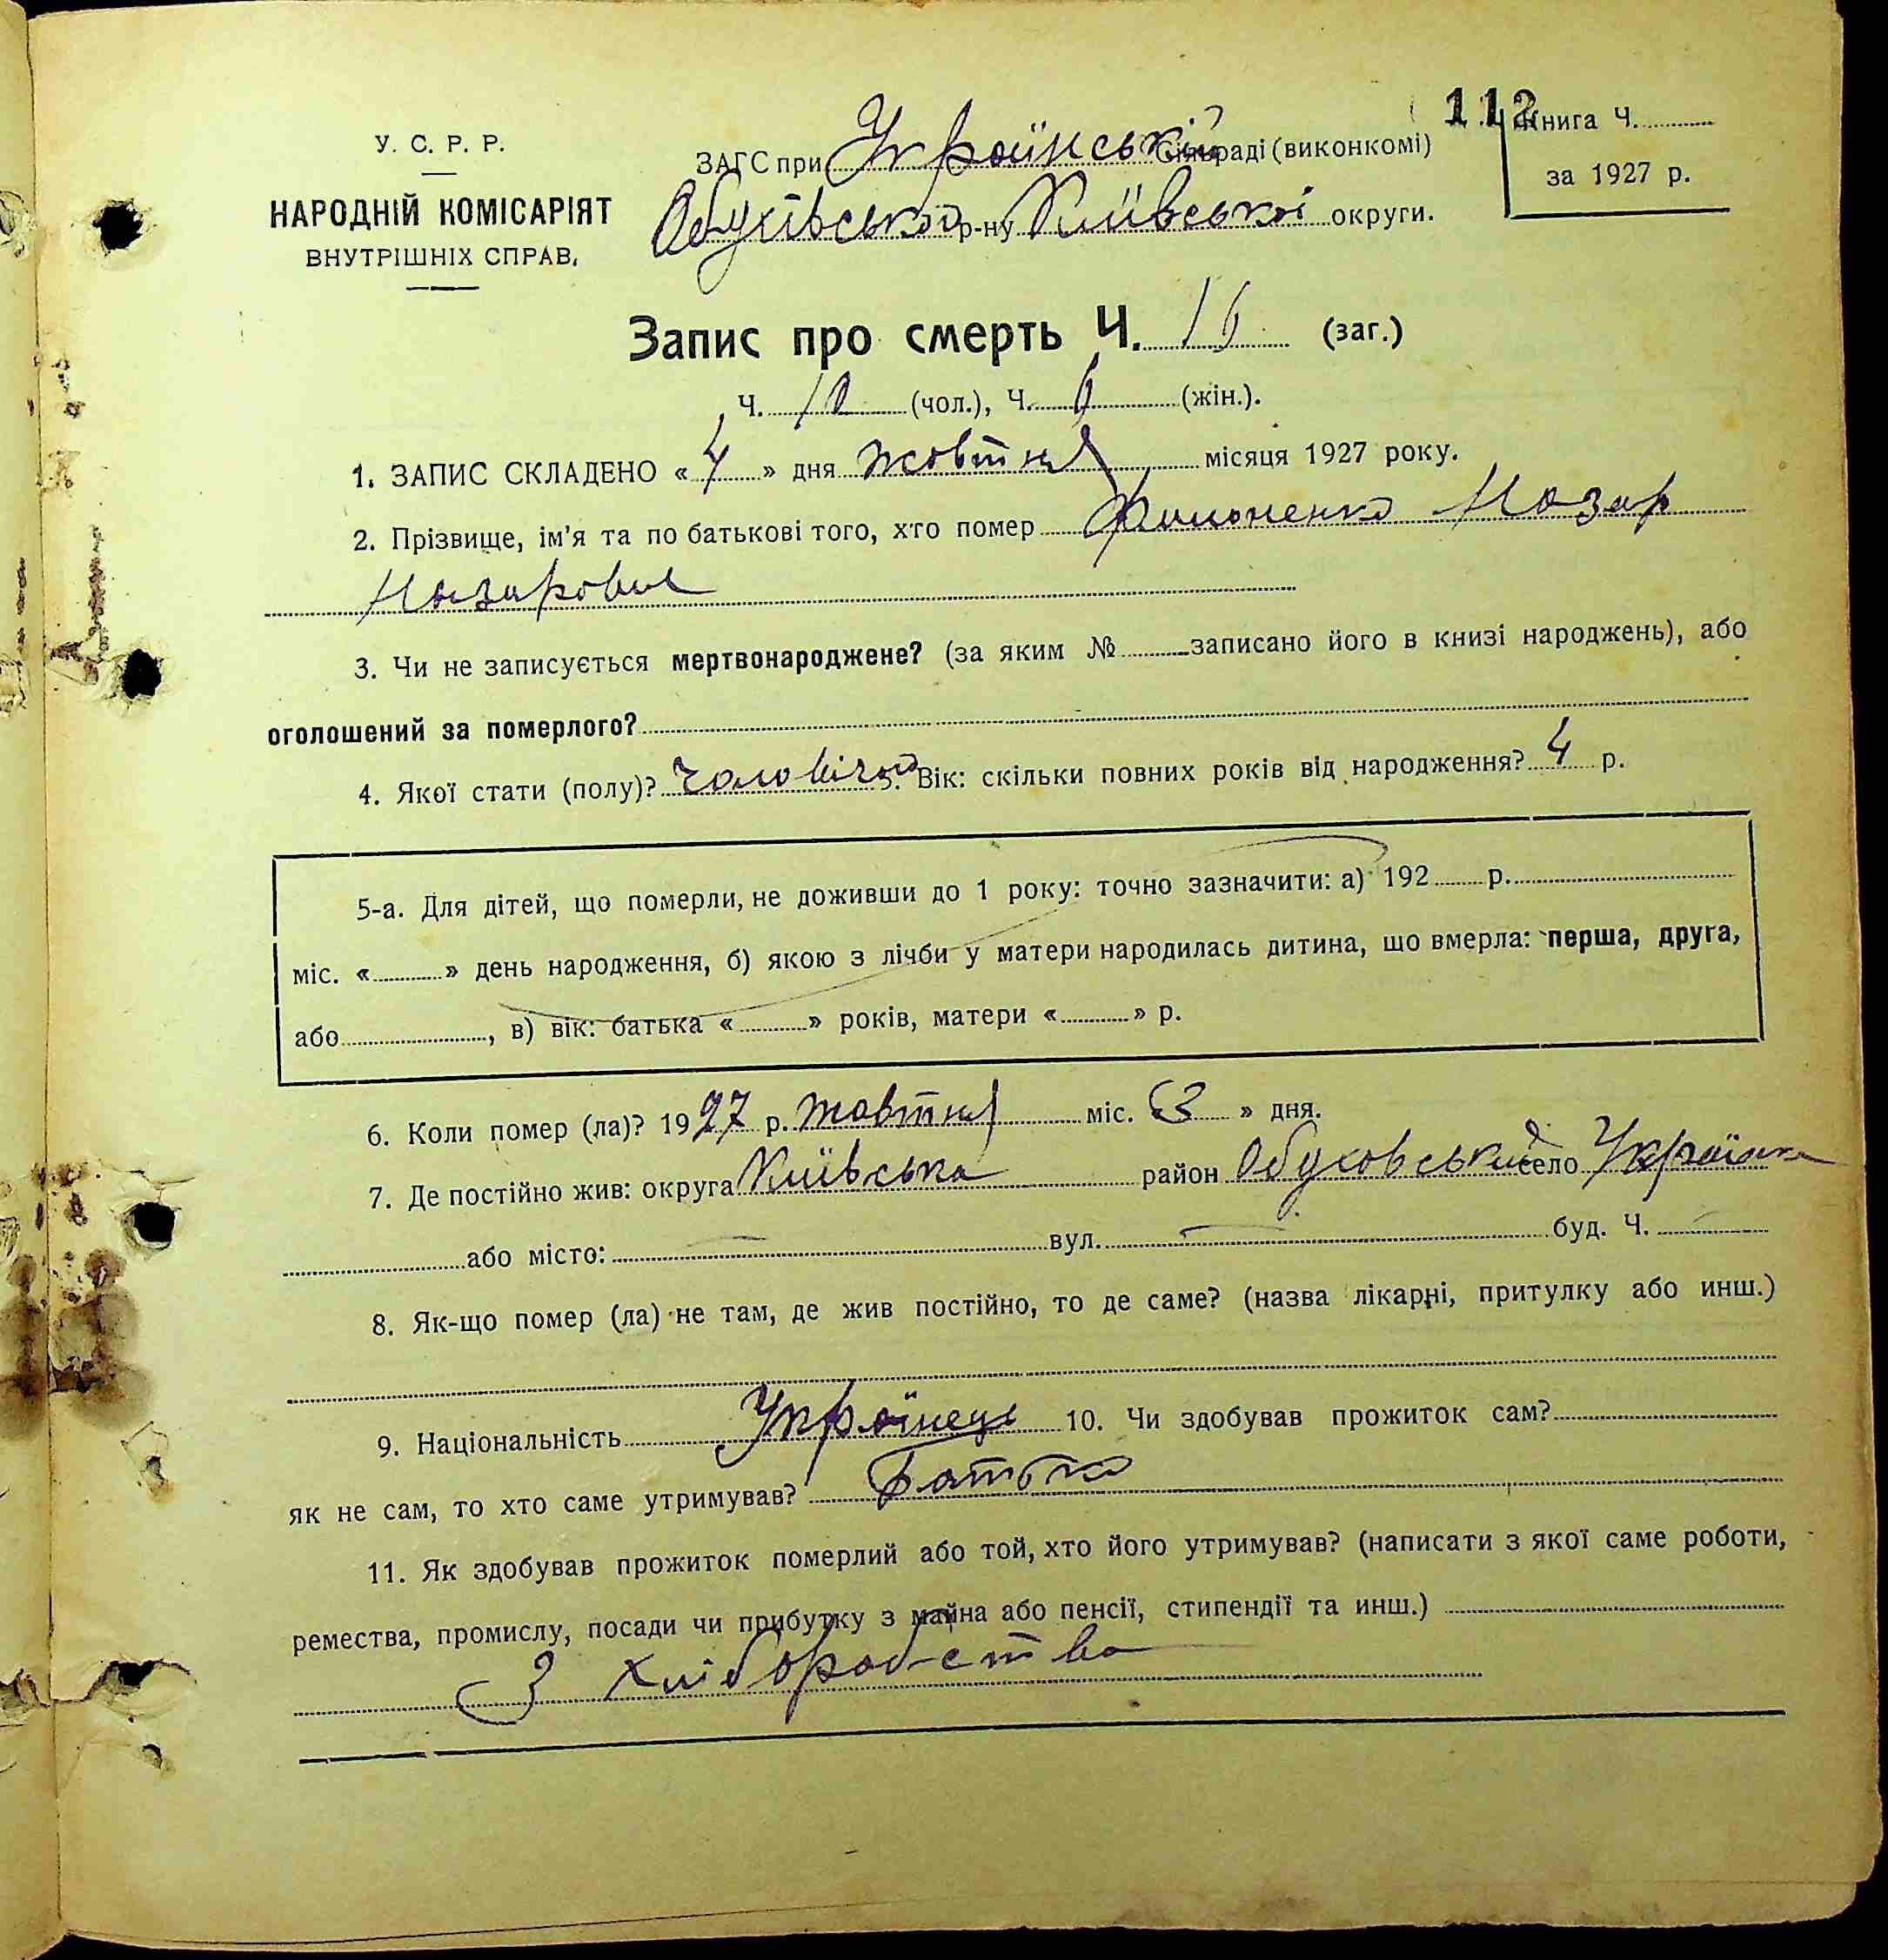 112
У. С. Р. Р.
НАРОДНІЙ КОМІСАРІЯТ
ВНУТРІШНІХ СПРАВ.
ЗАГС при Українській Сільраді (виконкомі)
Обухівської р-ну Київської округи.
Книга Ч.
за 1927 р.
Запис про смерть Ч. 16 (заг.)
Ч. 10 (чол.), Ч. 6 (жін.).
1. ЗАПИС СКЛАДЕНО «4» дня жовтня місяця 1927 року.
2. Прізвище, ім'я та по батькові того, хто помер Филоненко Назар
Назарович
3. Чи не записується мертвонароджене? (за яким № записано його в книзі народжень), або
оголошений за померлого?
4. Якої стати (полу)? чоловічої 5. Вік: скільки повних років від народження? 4 р.
5-а. Для дітей, що померли, не доживши до 1 року: точно зазначити: а) 192 р.
міс. « » день народження, б) якою з лічби у матери народилась дитина, що вмерла: перша, друга,
або , в) вік: батька « » років, матери « » р.
6. Коли помер (ла)? 1927 р. жовтня міс. «3 » дня.
7. Де постійно жив: округа Київська район Обуховський село Українка
або місто: вул. буд. Ч.
8. Як-що помер (ла) не там, де жив постійно, то де саме? (назва лікарні, притулку або инш.)
9. Національність Українець 10. Чи здобував прожиток сам?
як не сам, то хто саме утримував? Батько
11. Як здобував прожиток померлий або той, хто його утримував? (написати з якої саме роботи,
ремества, промислу, посади чи прибутку з майна або пенсії, стипендії та инш.)
З хліборобства